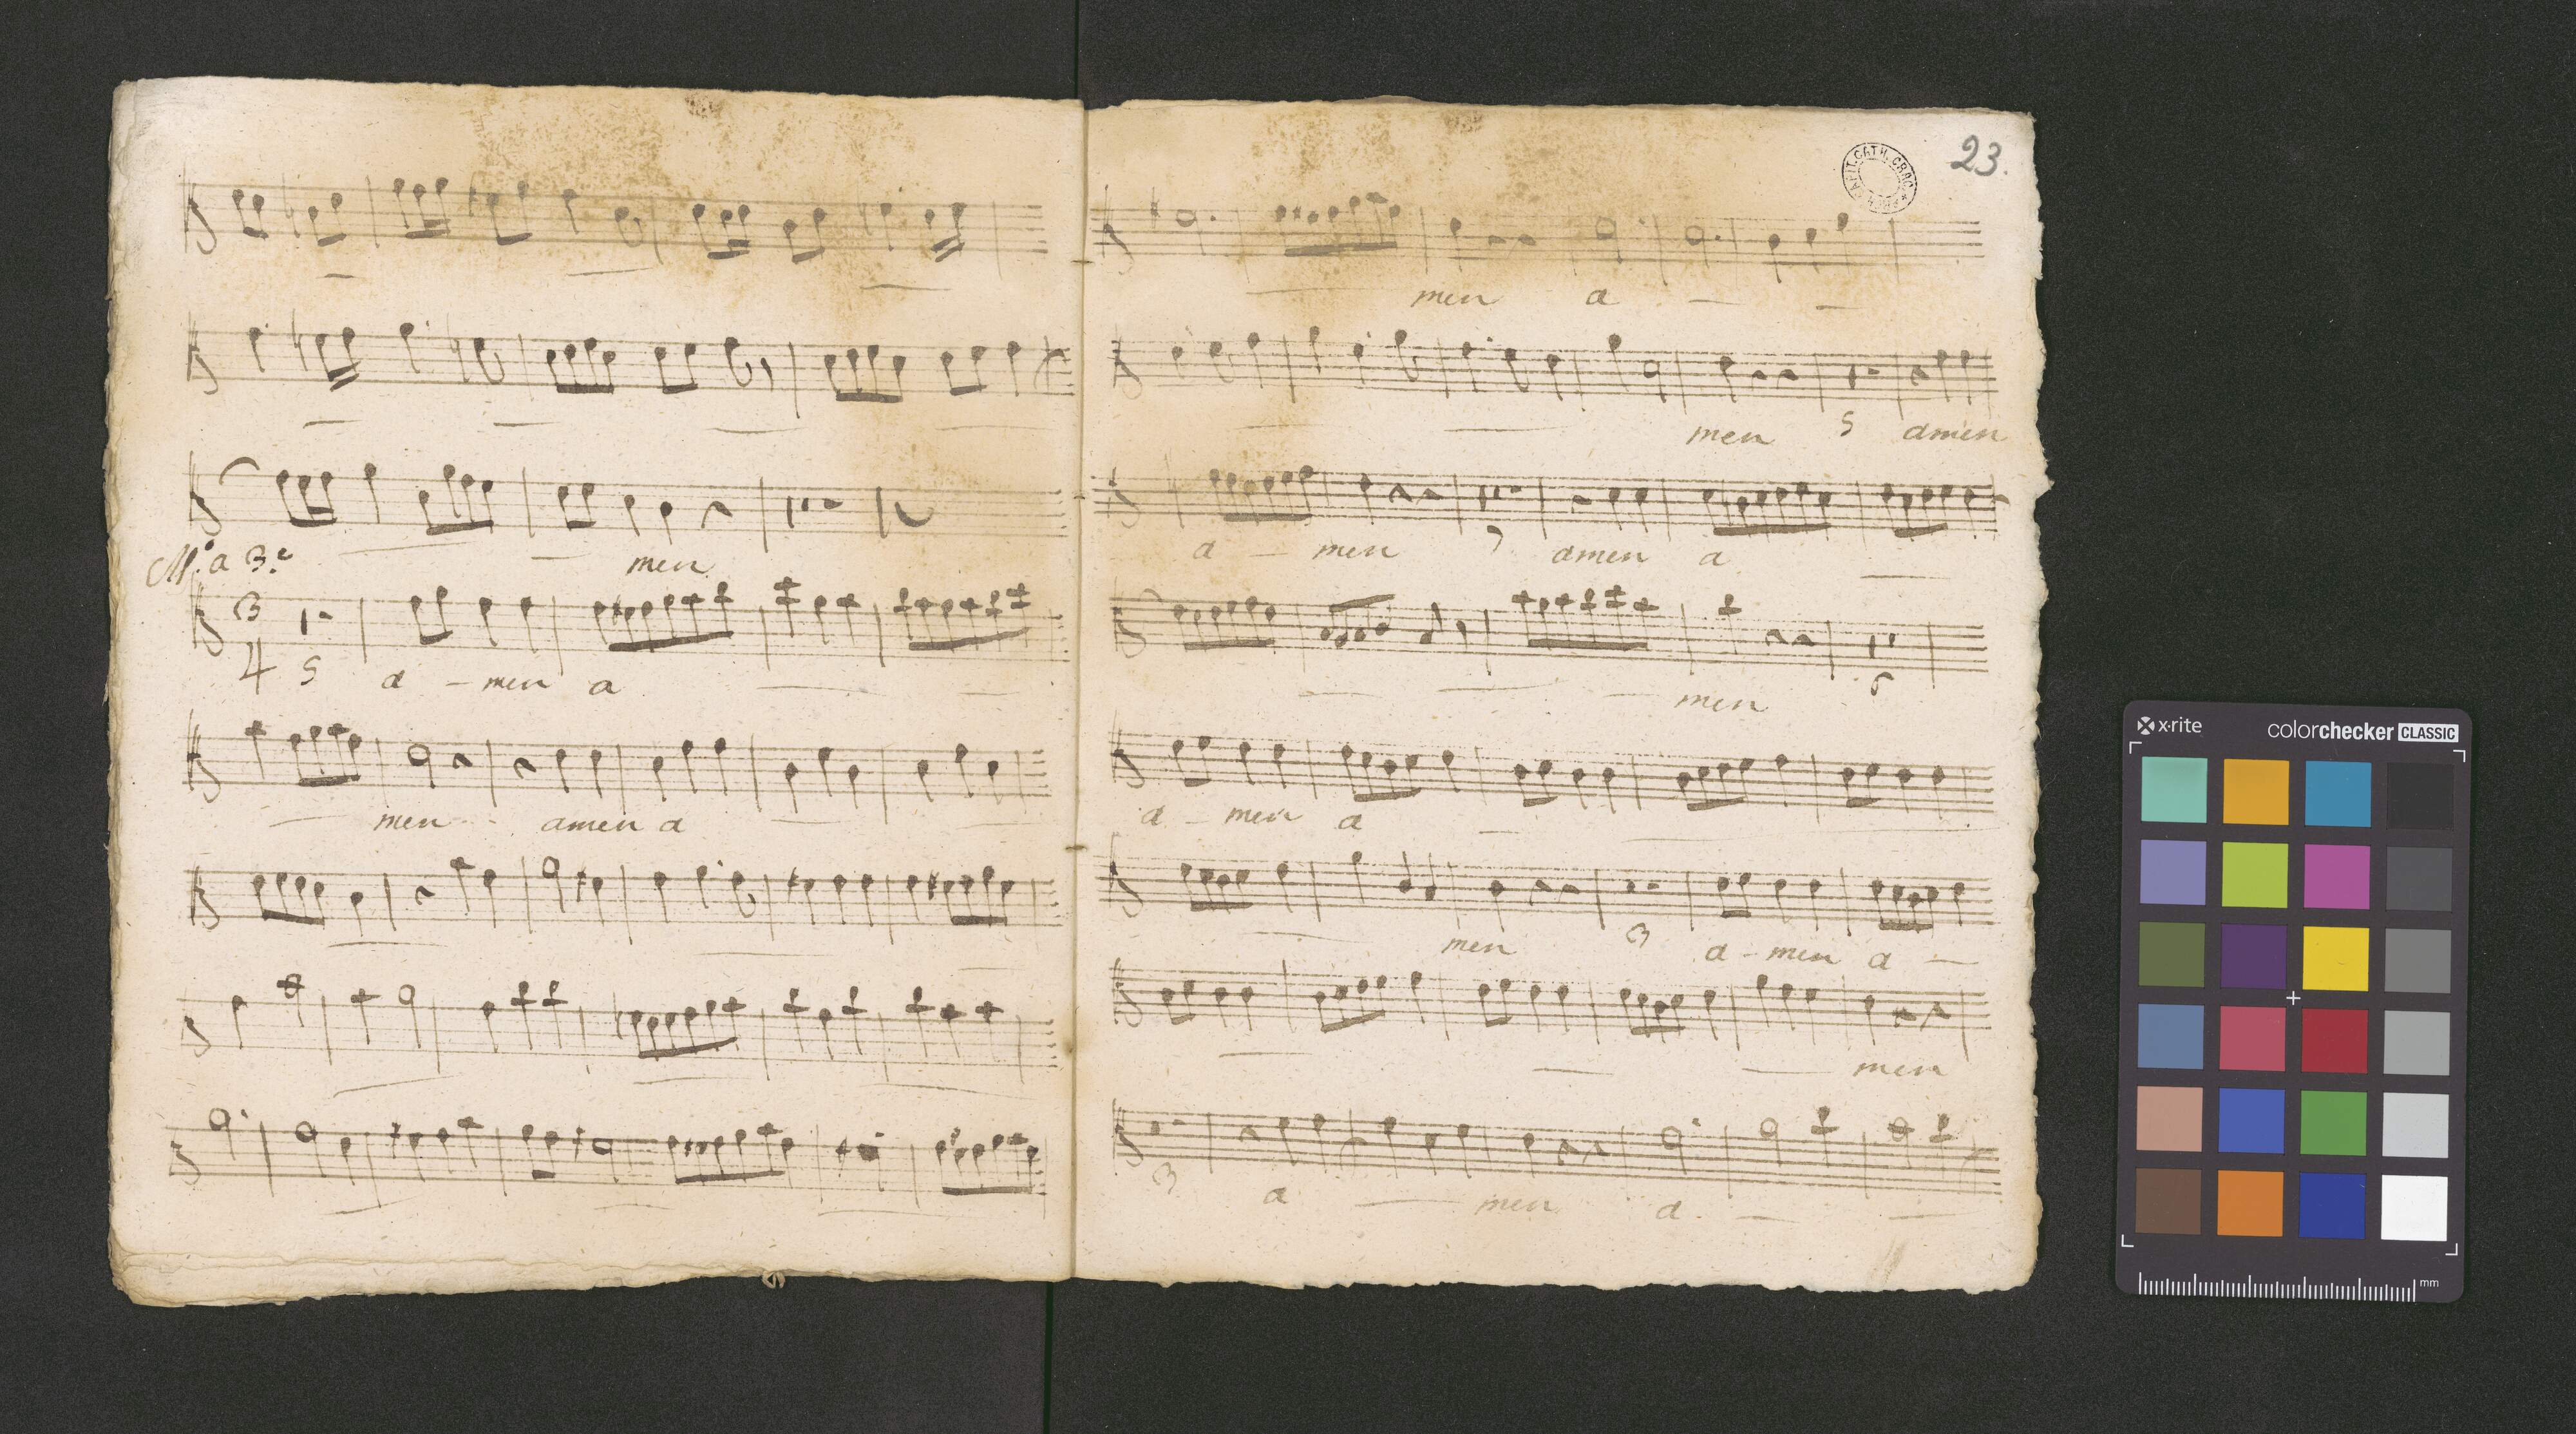 men
M.º a 3.e
3
4 5 a - men a
men amen a
23.
men a
men 5 amen
a - men 7 amen a
men 5
a - men a
men 3 a - men a -
men
3 a men a
x·rite colorchecker CLASSIC
mm